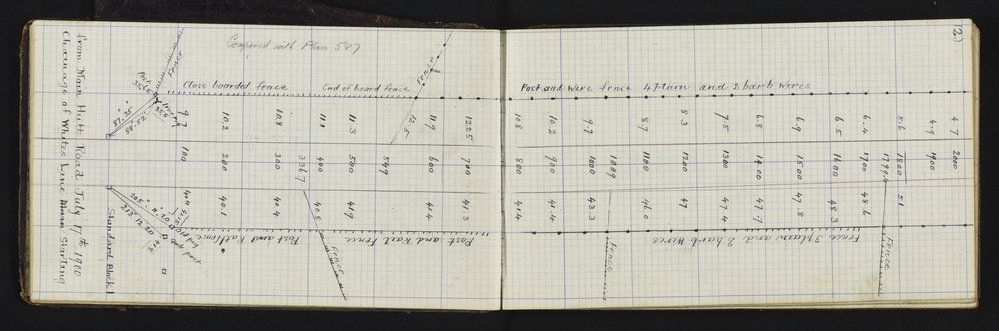 Chainage of Whites Line Main Starting
from Main Hutt Road July 17th 1900
Compared with Plan 587
12)
Fence
Fence
Post
35.65
Close boarded fence
End of board fence
Post and Wire fence 4 Plain and 2 barb Wires
9.7
10.2
10.8
11.1
11.3
12.5
11.9
12.25
10.8
10.2
9.7
8.7
8.3
7.5
6.8
6.9
6.5
6.4
5.6
4.9
4.7
100
200
300
336.7
400
500
549
600
700
800
900
1000
1109
1100
1200
1300
1400
1500
1600
1700
1799.4
1800
1900
2000
40.1
40.4
40.8
41.9
41.4
41.3
41.4
41.4
43.3
46.0
47
47.4
47.7
47.8
48.3
48.6
5.1
87.35
88.52
Standard Block
Post and Rail fence
Fence
Post and Rail Fence
Fence
Fence 3 plain and 2 barb Wires
Fence